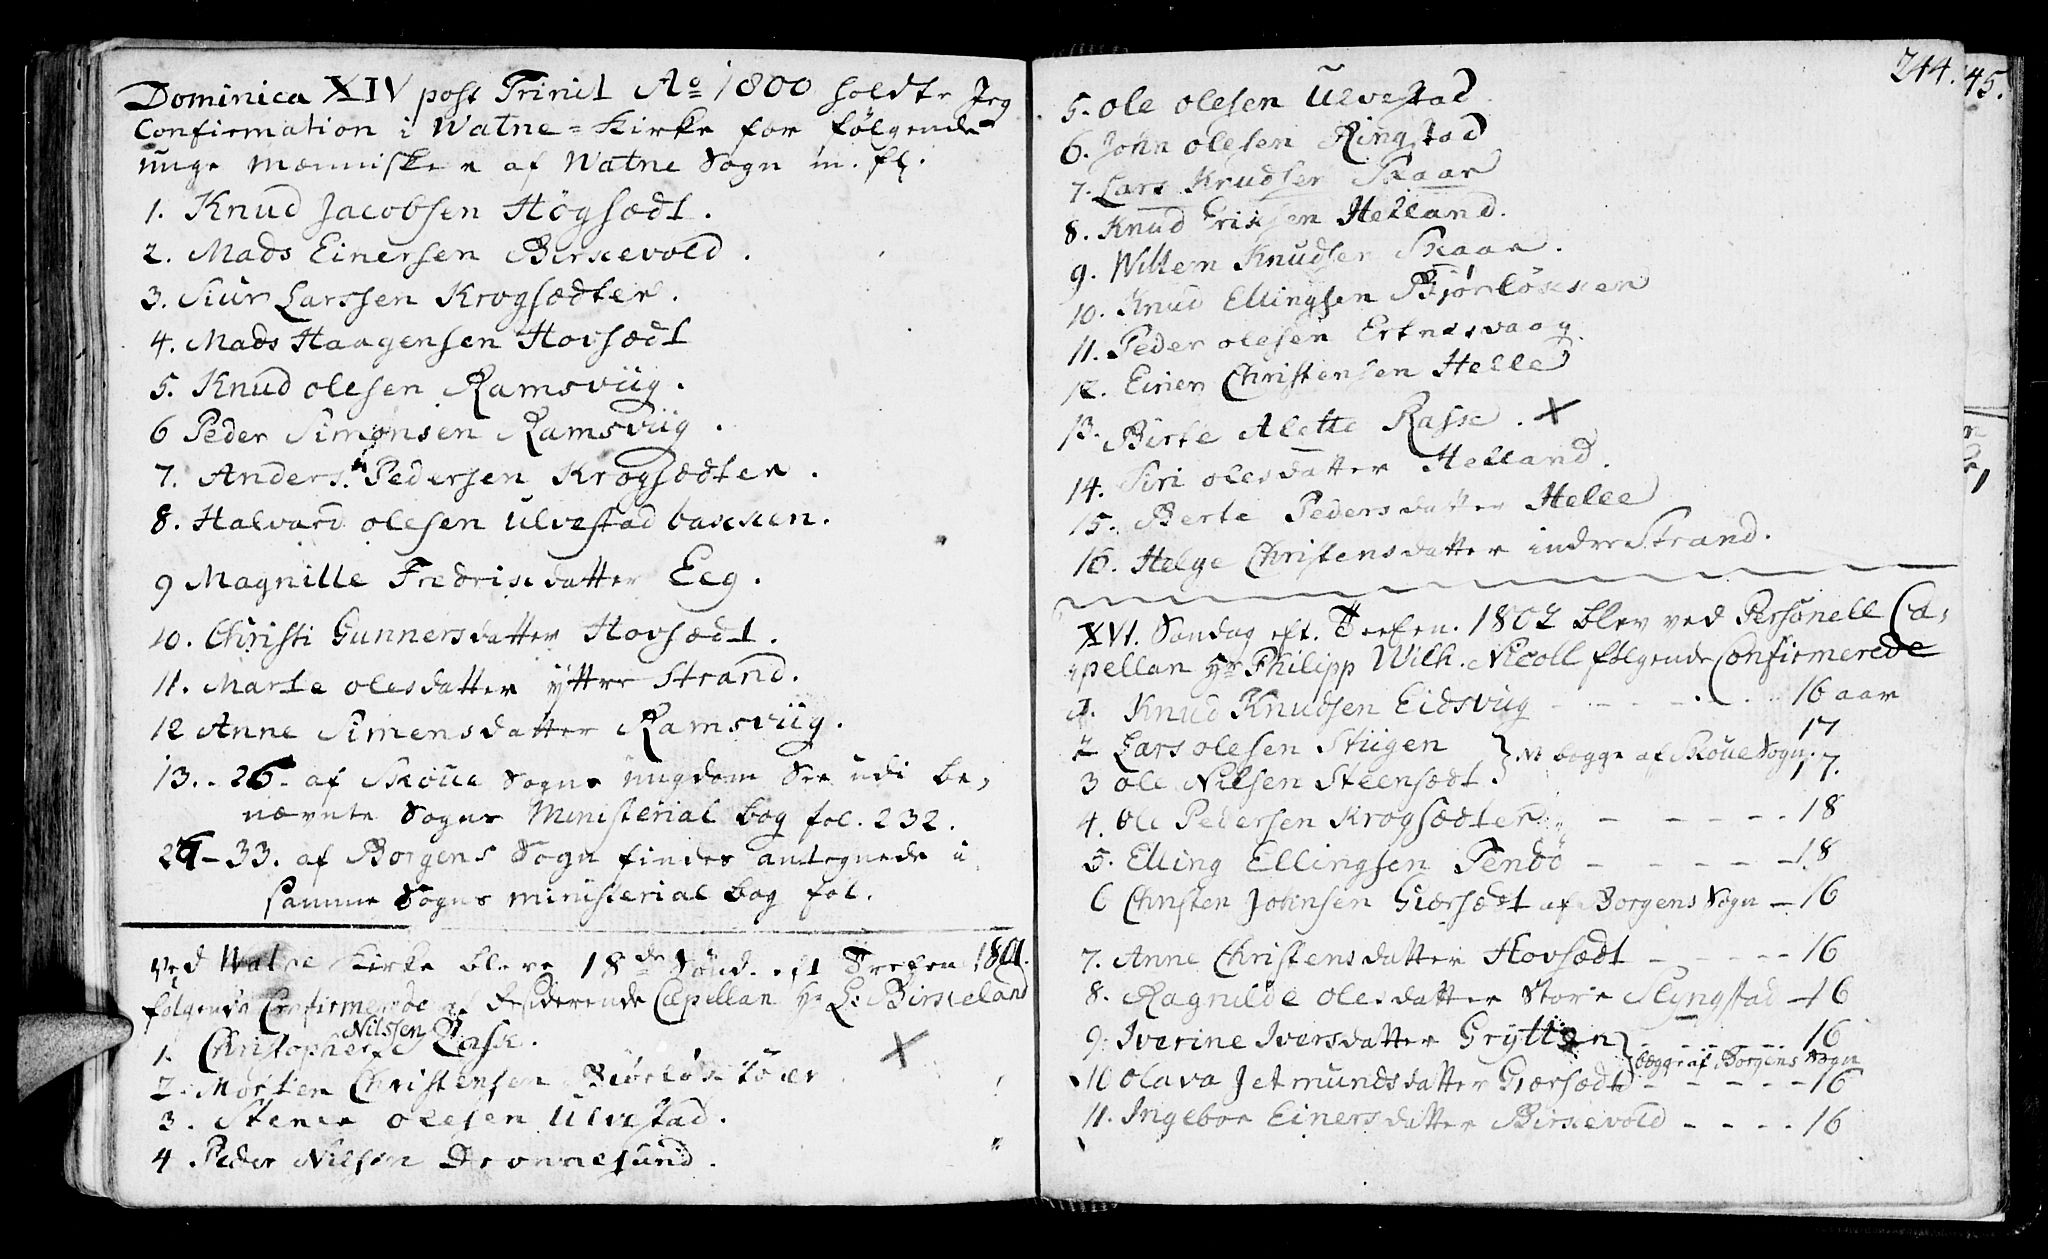 Dominica XIV post Trinit Aº 1800 holdte Jeg
Confirmation i Watne-Kirke for følgende
unge Mennisker af Watne Sogn m. fl.
1. Knud Jacobsen Högsædt.
2. Mads Einersen Birkevold.
3. Siur Larssen Krogsædter.
4. Mads Haagensen Hovsædt
5. Knud olesen Ramsviig.
6 Peder Simonsen Ramsviig.
7. Anders Pedersen Krogsædter.
8. Halvard olesen Ulvestad bakken.
9 Magnille Fredrixdatter Eeg.
10. Christi Gunnersdatter Hovsædt.
11. Marte olesdatter yttre Strand.
12 Anne Simensdatter Ramsviig.
13.-26. af Skoue Sogns ungdom See udi be-
nævnte Sogns Ministerial bog fol. 232.
27-33. af Borgens Sogn findes antegnede i
samme Sogns ministerial bog fol.
Ved Watne Kirke bleve 18de Sönd. eft Trefen 1801.
følgende Confirmerede af Residerende Capellan Hr L. Birkeland
Nilssen
1. Christopher Raske.
2. Morten Christensen
3. Stener olesen Ulvestad.
4 Peder Nilsen Dronnesund.
244.
45.
5. ole olesen Ulvestad
6. John olesen Ringstad
7. Lars Knudsen Skaar
8. Knud Erixsen Helland.
9. Willem Knudsen Skaar.
10. Knud Ellingsen Biørløkken
11. Peder olesen Erknesvaag.
12. Einer Christensen Helle
13. Birte Alette Raske. X
14. Siri olesdatter Helland.
15. Berte Pedersdatter Helle
16. Helge Christensdatter indre Strand.
XVI. Søndag eft. Trefen. 1802 blev ved Personell Ca-
pellan Hr Philipp Wilh. Nicoll følgende Confirmerede
1. Knud Knudsen Eidsviig - - - - 16 aar
2 Lars olesen Stiigen 17
} No begge af Skoue Sogn
3 ole Nilsen Steensædt. 17.
4. Ole Pedersen Krogsædter - - - - - 18
5. Elling Ellingsen Tendø - - - - - 18
6 Christen Johnsen Giærsædt af Borgens Sogn - 16
7. Anne Christensdatter Hovsædt - - - - 16
8. Ragnilde olesdatter Store Slyngstad - 16
9. Iverine Iversdatter Grytten - - - - 16
} begge af Borgens Sogn
10 olava Jetmundsdatter Giærsædt - - - - 16
11. Ingebor Einersdatter Birkevold - - - - 16